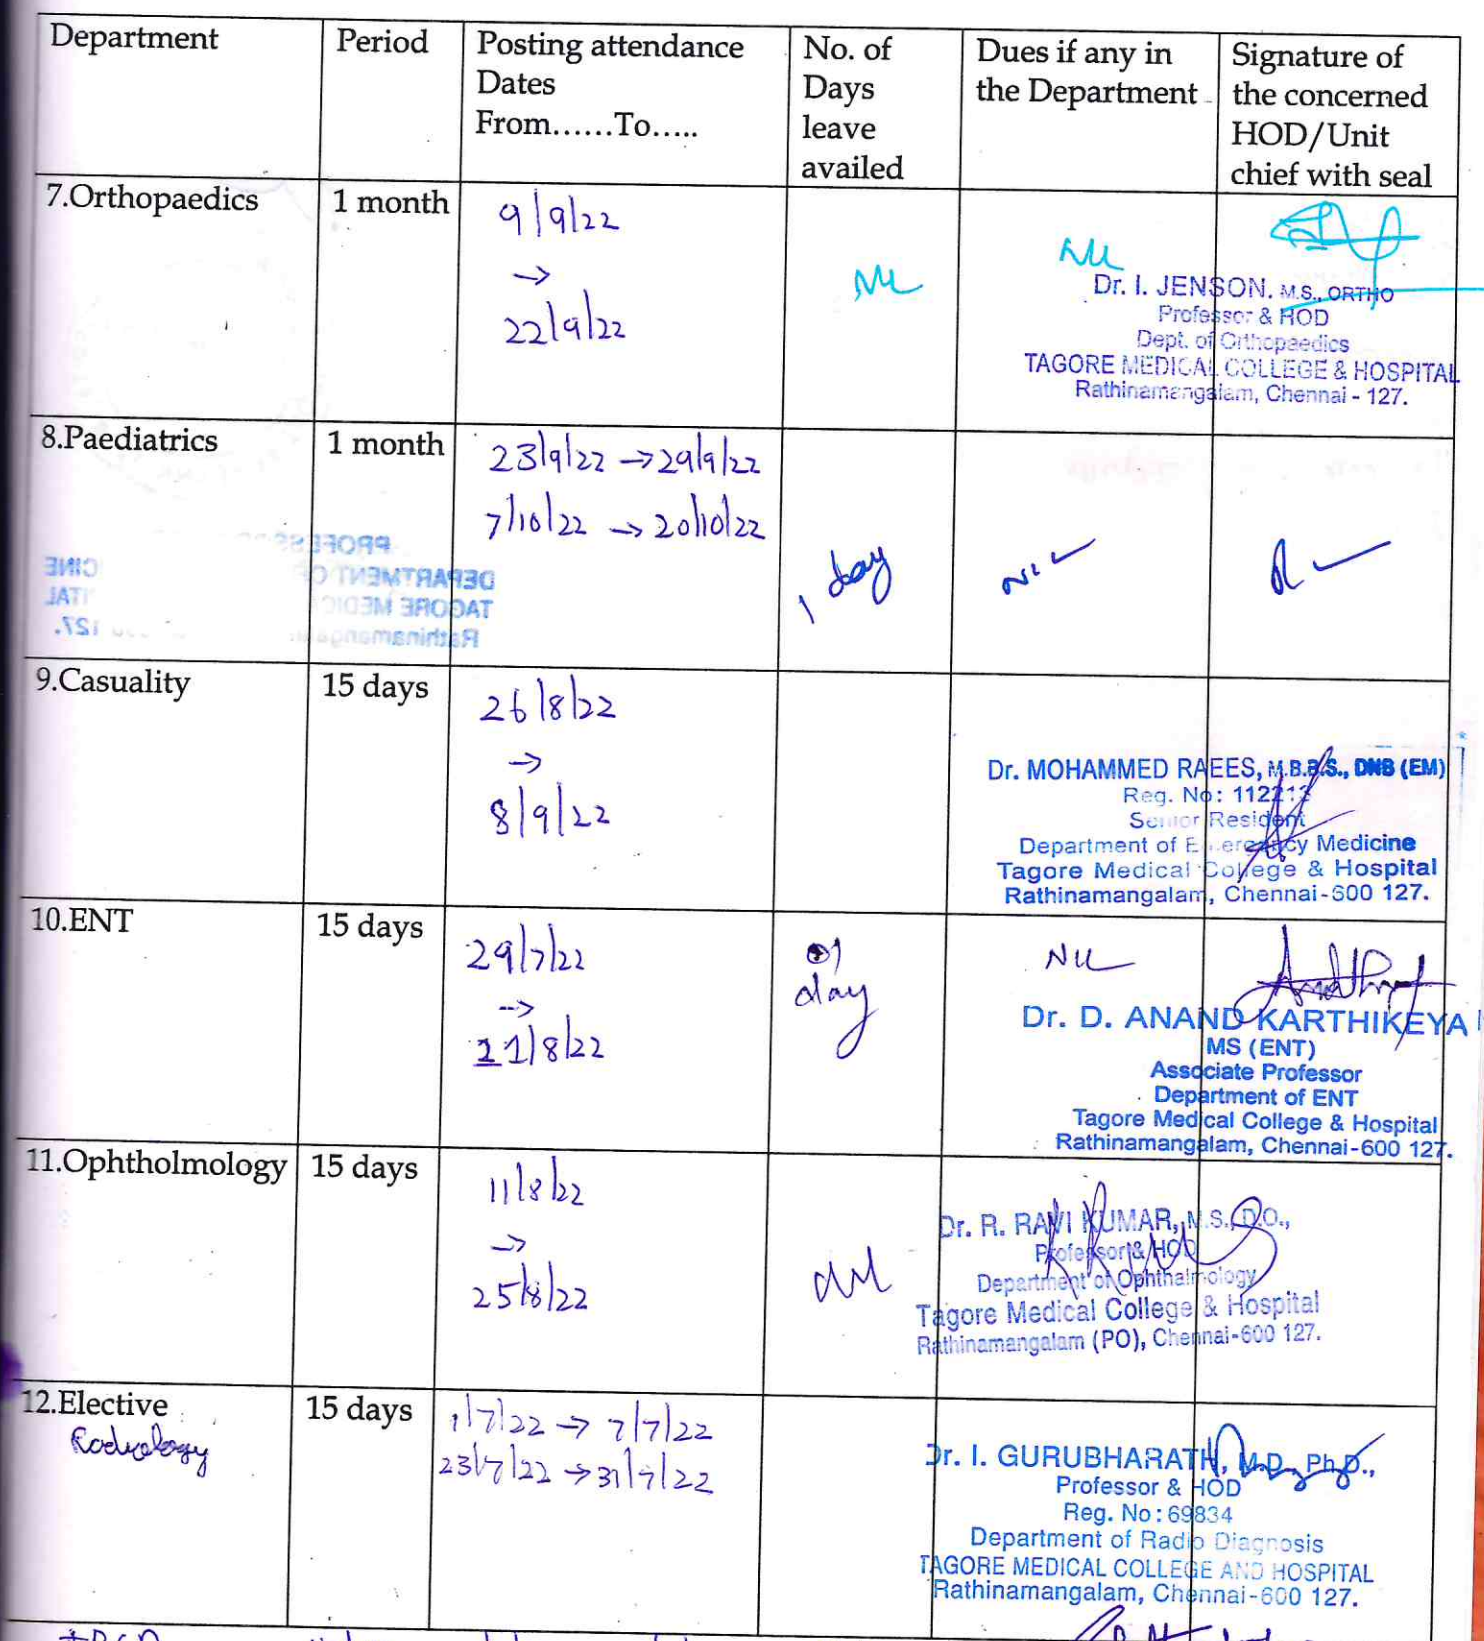 Department
Period
Posting attendance
Dates
From......To.....
No. of
Days
leave
availed
Dues if any in
the Department
Signature of
the concerned
HOD/Unit
chief with seal
7.Orthopaedics
1 month
9/9/22
→
22/9/22
Nil
Nil
Dr. I. JENSON. M.S., ORTHO
Professor & HOD
Dept. of Orthopaedics
TAGORE MEDICAL COLLEGE & HOSPITAL
Rathinamangalam, Chennai - 127.
8.Paediatrics
1 month
23/9/22 → 29/9/22
7/10/22 → 20/10/22
1 day
Nil
PROFESS
DEPARTMENT OF CINE
TAGORE MEDIC ITAL
Rathinamanga 127.
9.Casuality
15 days
26/8/22
→
8/9/22
Dr. MOHAMMED RAEES, M.B.B.S., DNB (EM)
Reg. No: 112213
Senior Resident
Department of Emergency Medicine
Tagore Medical College & Hospital
Rathinamangalam, Chennai-600 127.
10.ENT
15 days
29/7/22
→
11/8/22
01
day
Nil
Dr. D. ANAND KARTHIKEYA
MS (ENT)
Associate Professor
Department of ENT
Tagore Medical College & Hospital
Rathinamangalam, Chennai-600 127.
11.Ophtholmology
15 days
11/8/22
→
25/8/22
Nil
Dr. R. RAVI KUMAR, M.S., D.O.,
Professor & HOD
Department of Ophthalmology
Tagore Medical College & Hospital
Rathinamangalam (PO), Chennai-600 127.
12.Elective
Radiology
15 days
1/7/22 → 7/7/22
23/7/22 → 31/7/22
Dr. I. GURUBHARATH, M.D., Ph.D.,
Professor & HOD
Reg. No: 69834
Department of Radio Diagnosis
TAGORE MEDICAL COLLEGE AND HOSPITAL
Rathinamangalam, Chennai-600 127.